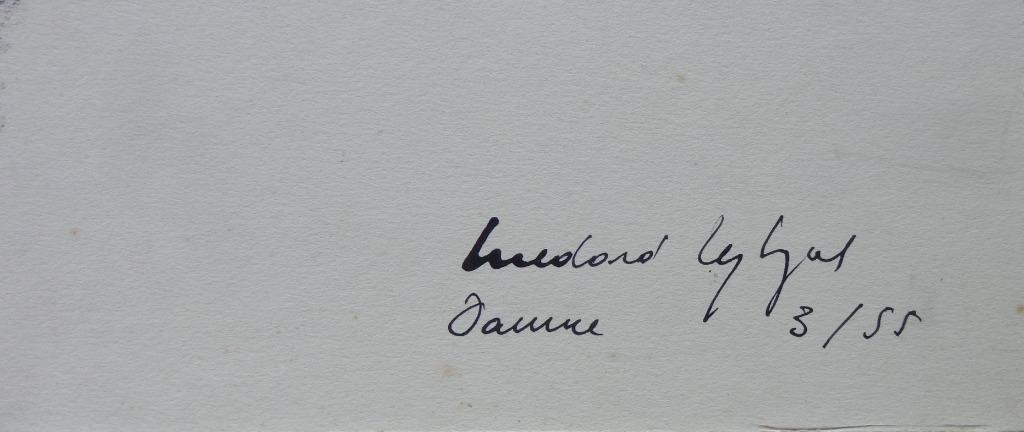 Medard
Damme 3/55